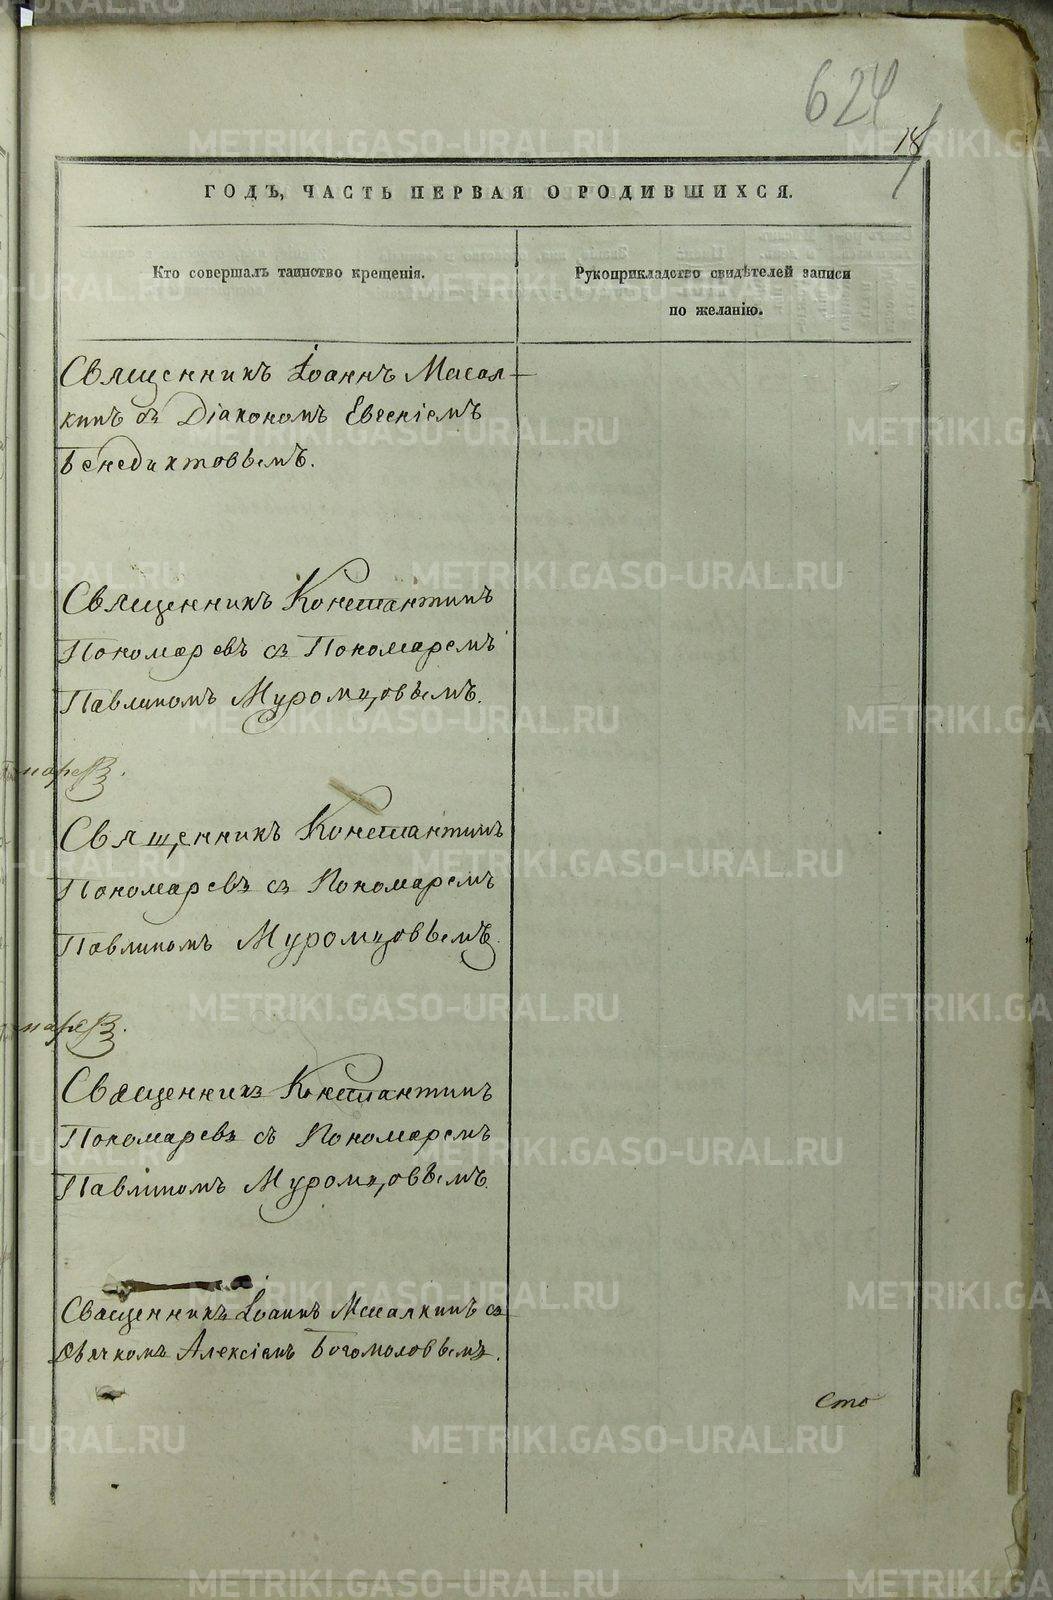 624
18
ГОДЪ, ЧАСТЬ ПЕРВАЯ О РОДИВШИХСЯ.
Кто совершалъ таинство крещенія.
Рукоприкладство свидѣтелей записи
по желанію.
Священникъ Іоаннъ Масал-
кинъ съ Діакономъ Евгеніемъ
Бенедиктовымъ.
Священникъ Константинъ
Пономаревъ съ Пономаремъ
Павлиномъ Муромцовымъ.
Священникъ Константинъ
Пономаревъ съ Пономаремъ
Павлиномъ Муромцовымъ
Священникъ Константинъ
Пономаревъ съ Пономаремъ
Павлиномъ Муромцовымъ.
Священникъ Іоаннъ Масалкинъ съ
Дьячкомъ Алексіемъ Богомоловымъ.
Сто
METRIKI.GASO-URAL.RU